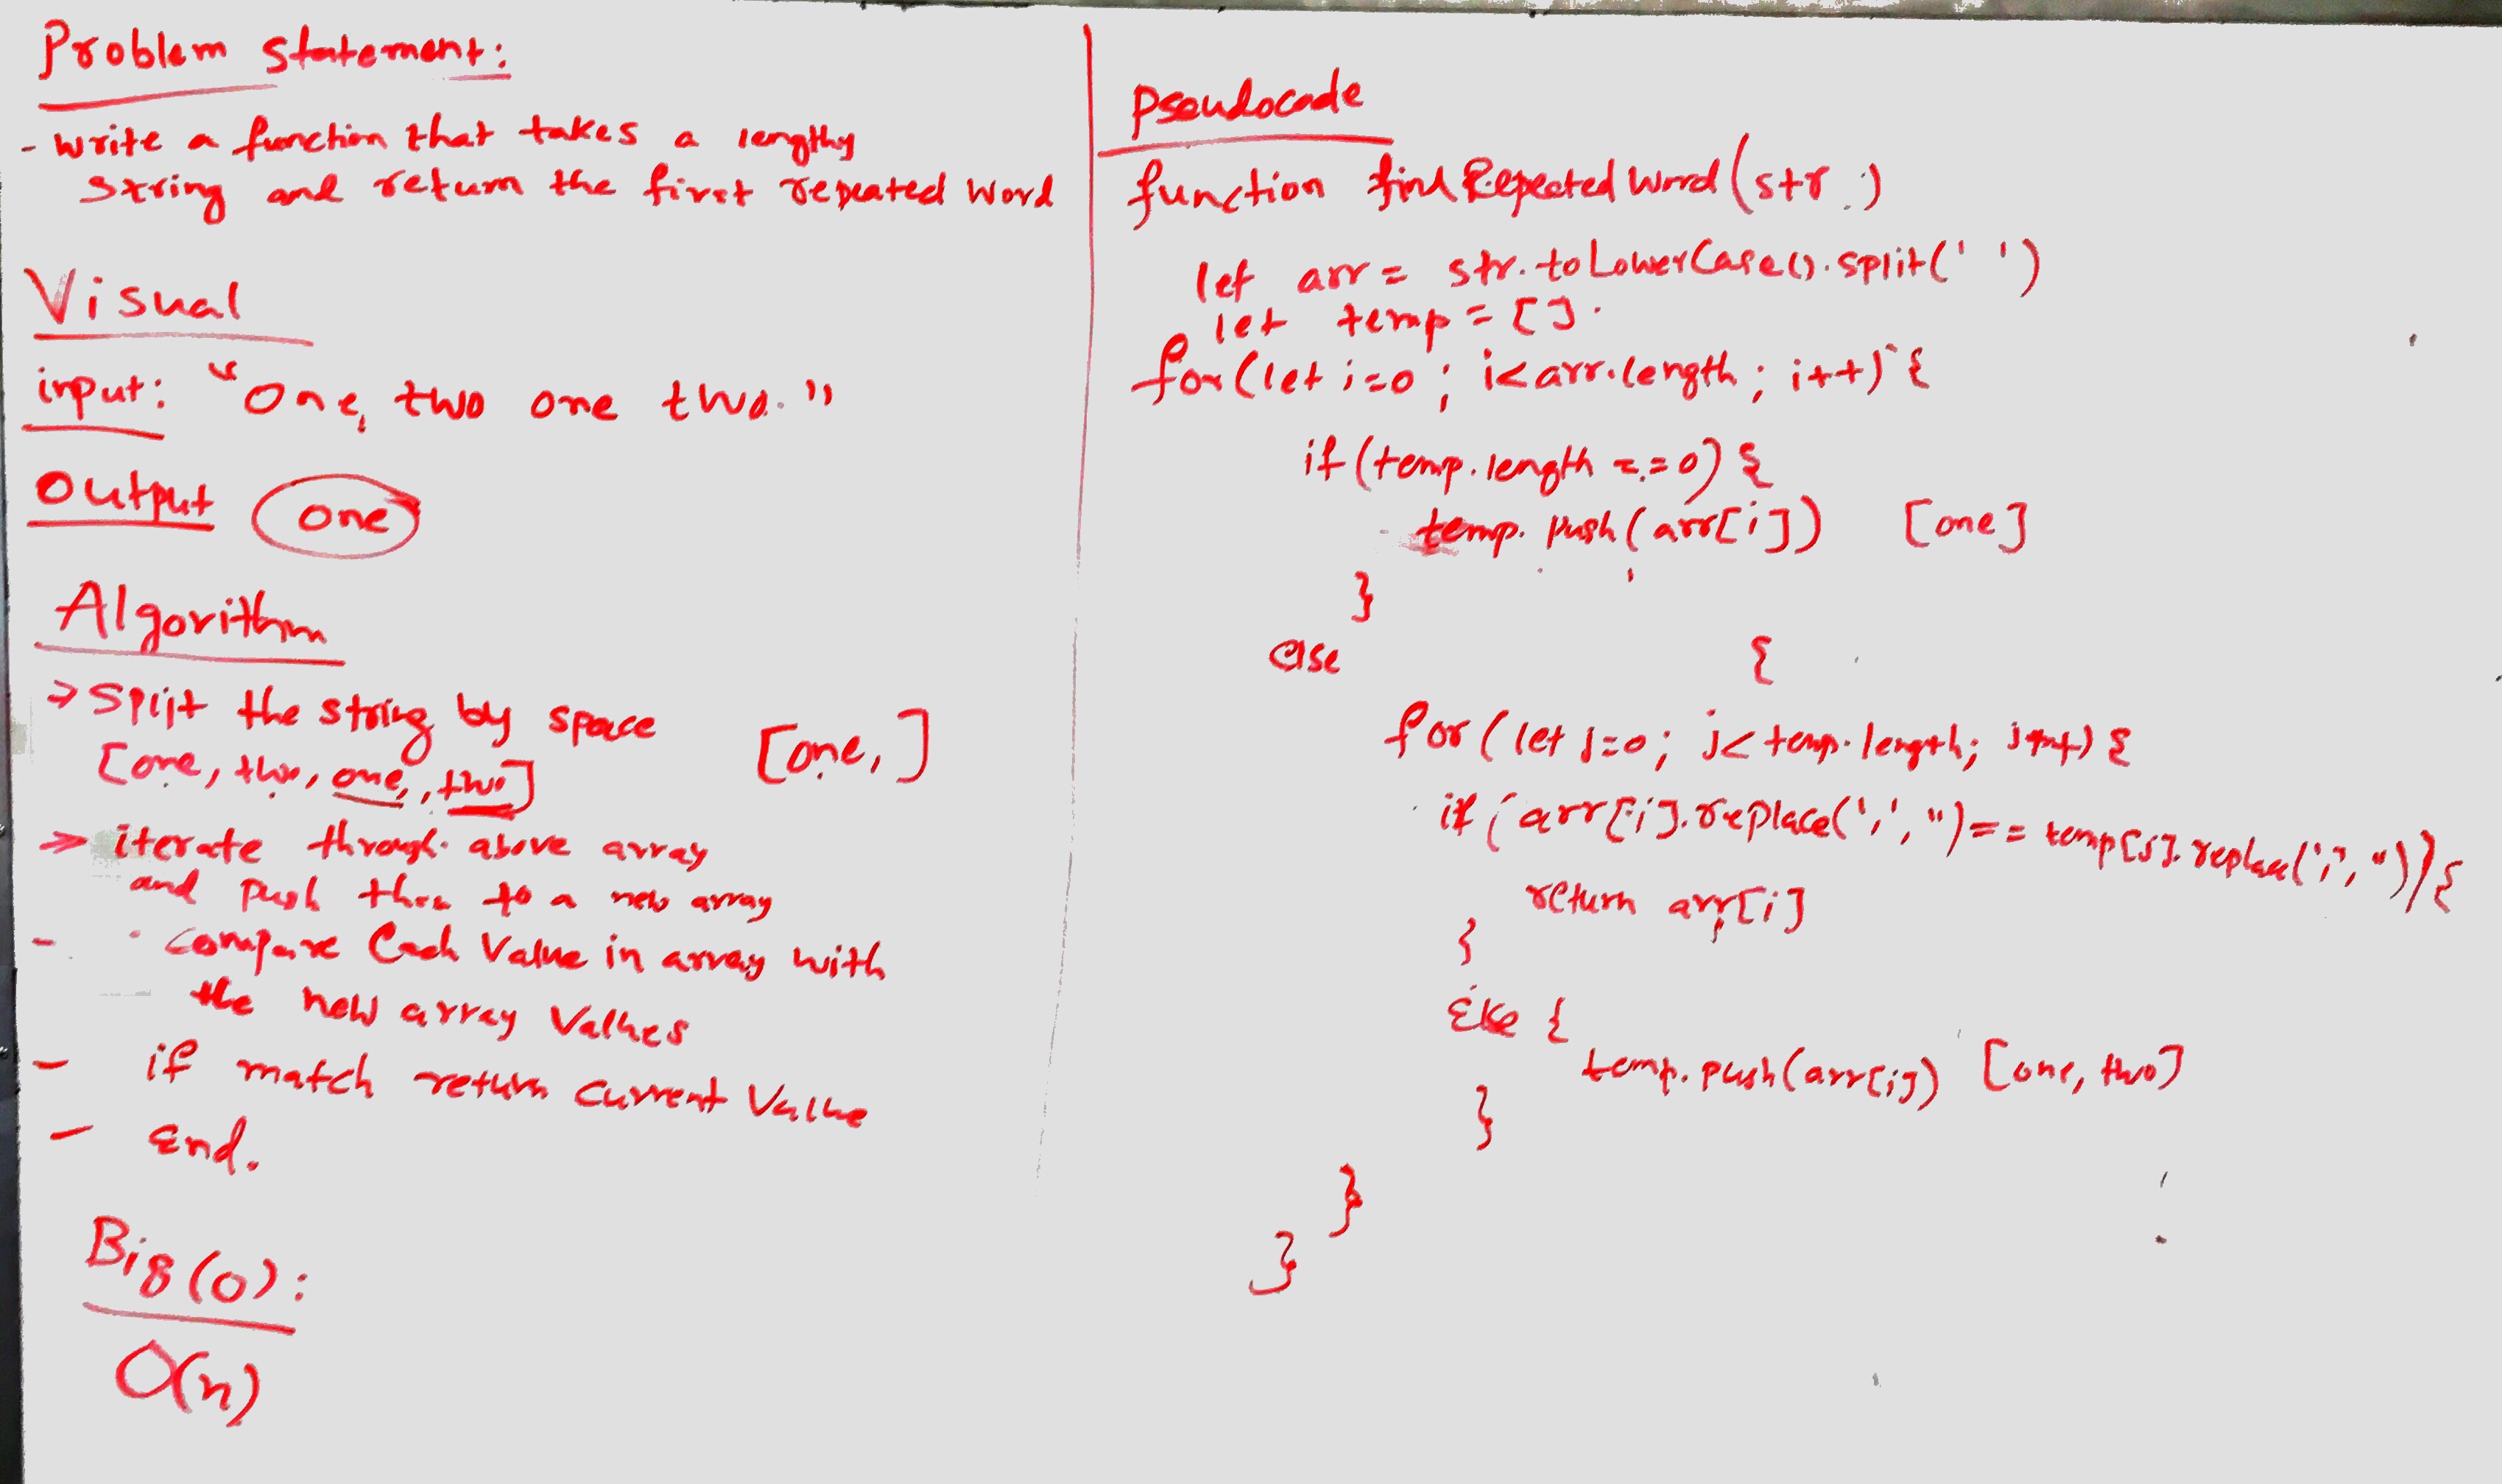 Problem statement:
- write a function that takes a lengthy
string and return the first repeated word
Visual
input: "One, two one two."
Output one
Algorithm
> Split the string by space
[one, two, one, two] [one, ]
> iterate through above array
and push then to a new array
- compare Each Value in array with
the new array Values
- if match return current Value
- End.
Big(O):
O(n)
pseudocode
function findRepeatedWord(str)
let arr = str.toLowerCase().split(' ')
let temp = [].
for(let i=0; i<arr.length; i++){
if(temp.length ==0){
temp.push(arr[i]) [one]
}
else {
for(let j=0; j<temp.length; j++){
if(arr[i].replace(',','')==temp[j].replace(',','')){
return arr[i]
}
Else {
temp.push(arr[i]) [one, two]
}
}
}